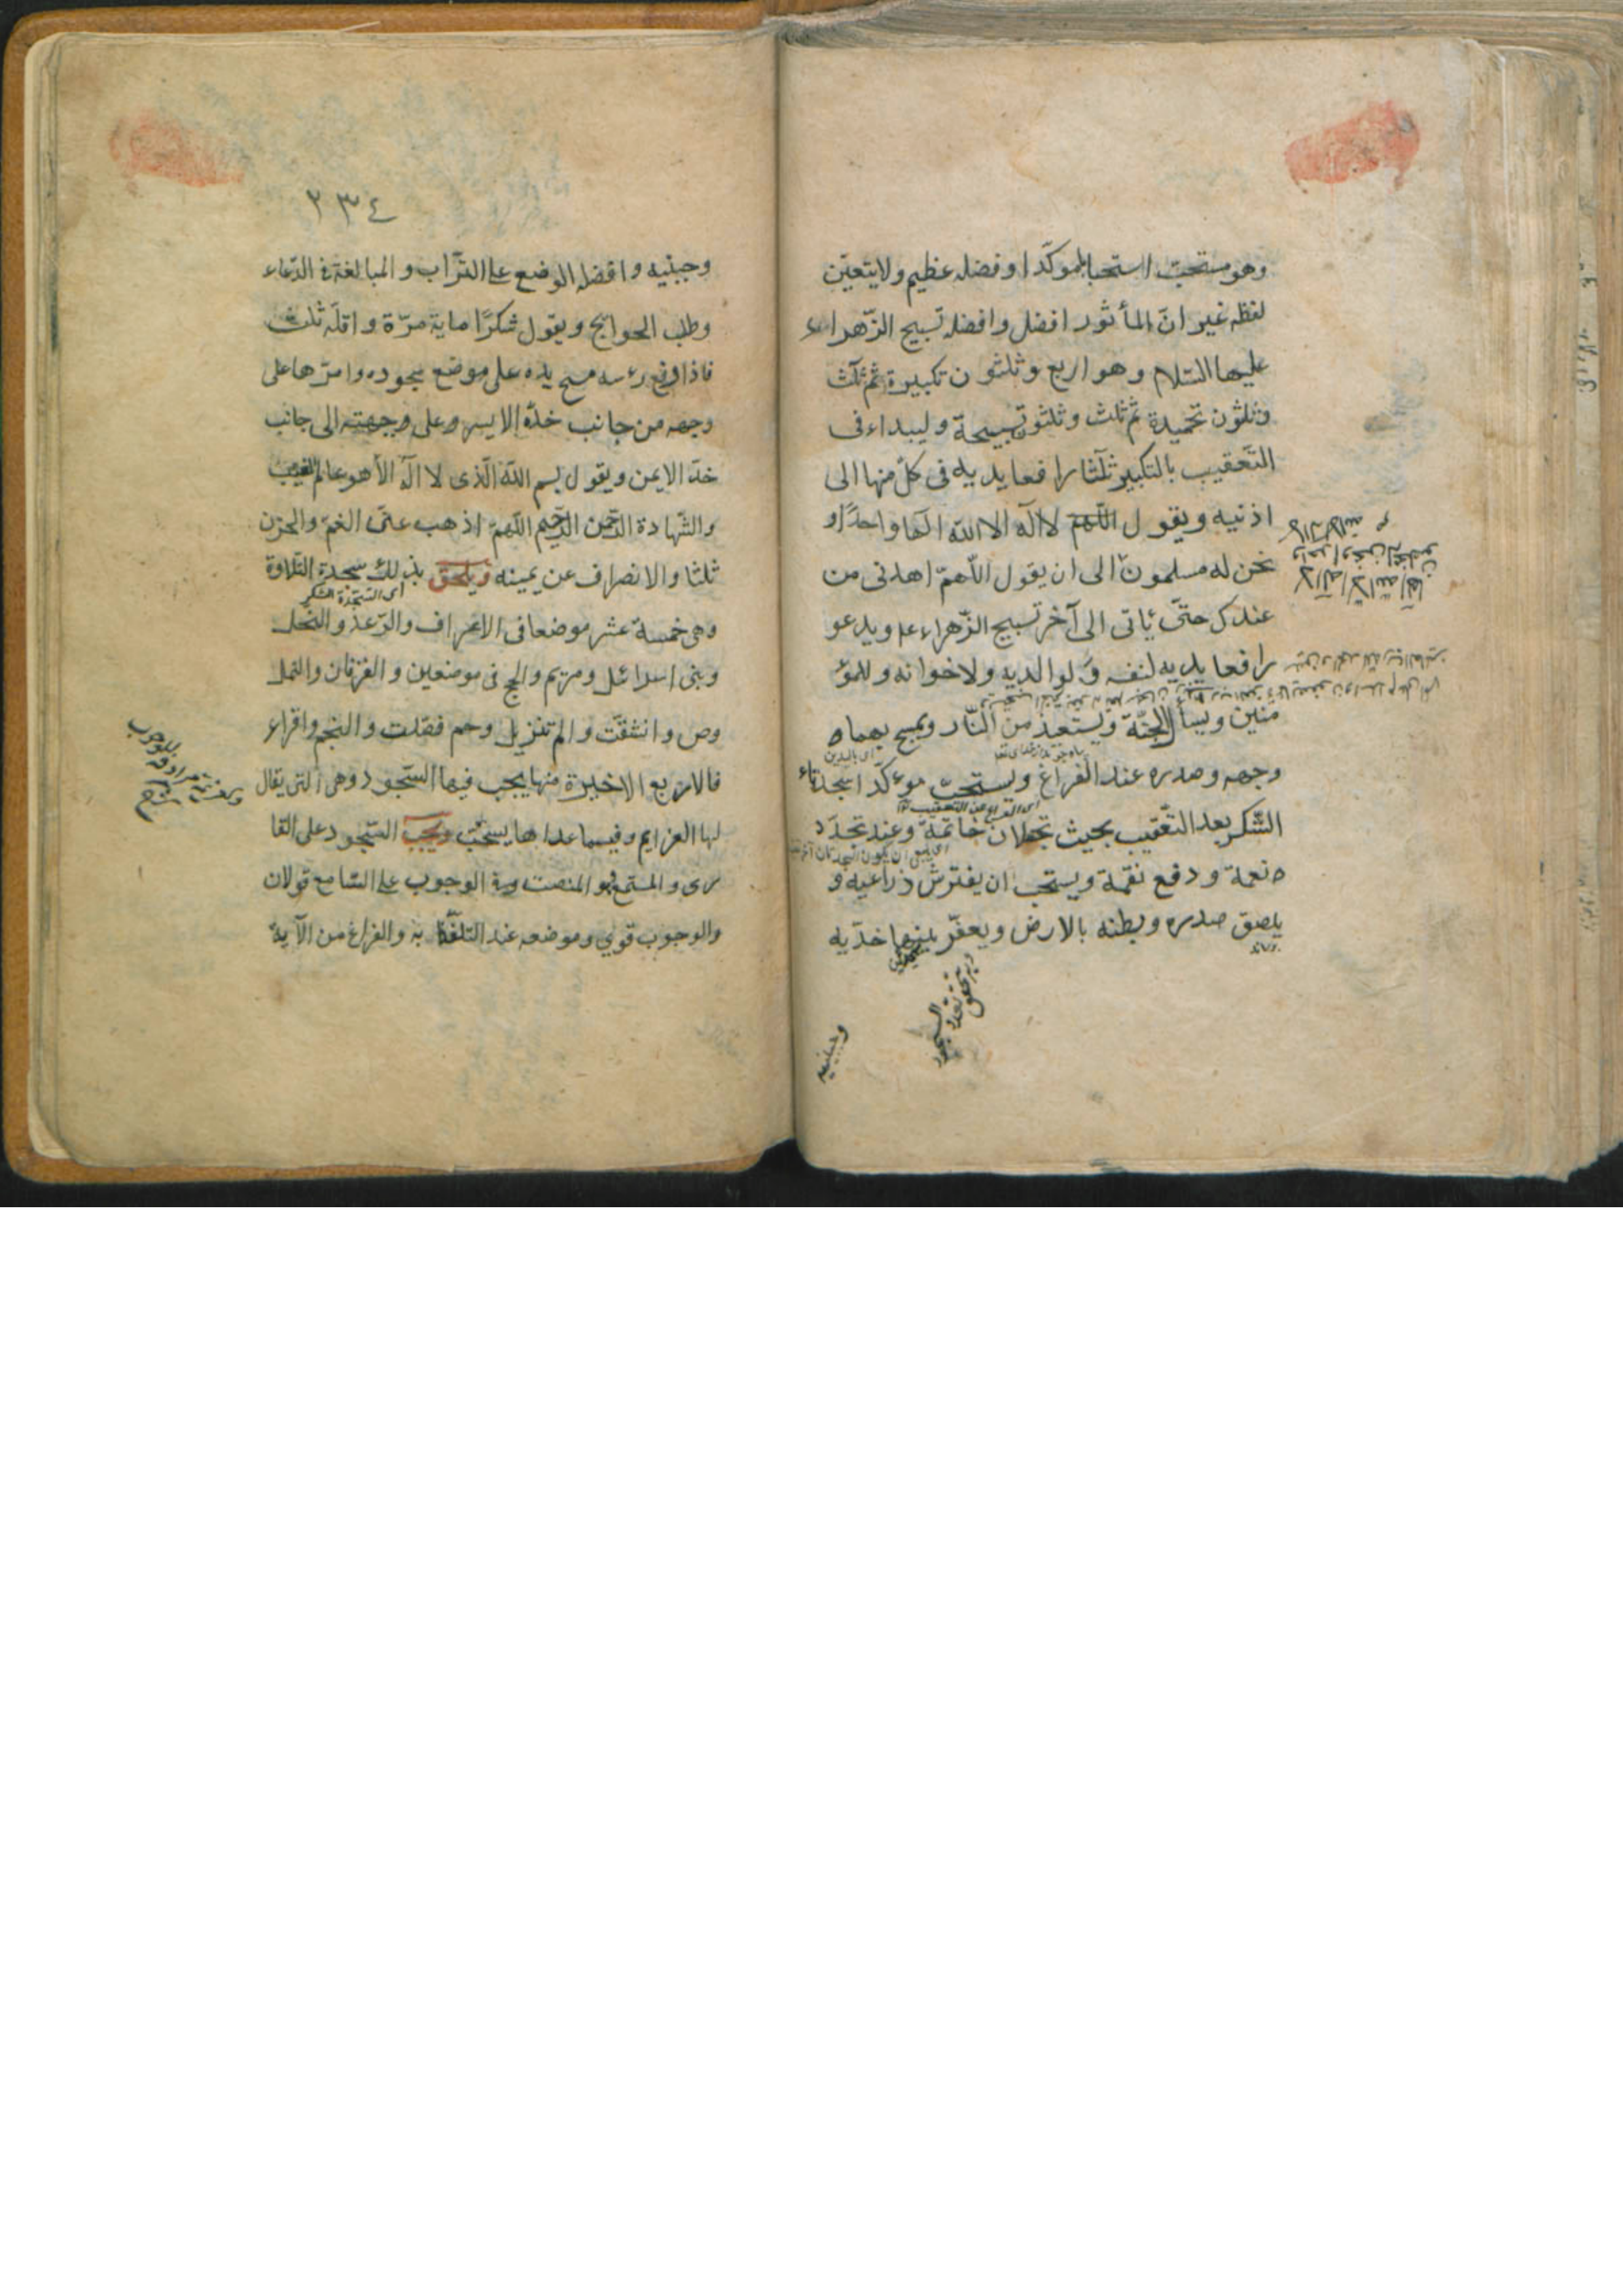 وهو مستحبّ استحبابا موكّدا وفضله عظيم ولا يتعيّن
لفظه غير انّ المأثور افضل وافضله تسبيح الزّهراء
عليها السّلام وهو اربع وثلثون تكبيرة ثم ثلث
وثلثون تحميدة ثم ثلث وثلثون تسبيحة وليبداء فى
التّعقيب بالتكبير ثلثا رافعا يديه فى كلّ منها الى
اذنيه ويقول اللّهمّ لا اله الا اللّه الها واحدًا و
نحن له مسلمون الى ان يقول اللّهمّ اهدنى من
عندك حتّى يأتى الى آخر تسبيح الزّهراء عم ويدعو
رافعا يديه لنفسه ولوالديه ولاخوانه وللمؤ
منين ويسأل الجنّة ويستعذ من النّار ويمسح بهما
اى باليدين
وجهه وصدره عند الفراغ ويستحبّ موءكّدا سجدتاء
اى الفراغ من التعقيب
الشّكر بعد التّعقيب بحيث تجعلان خاتمة وعند تجدّد
نعمة ودفع نقمة ويستحب ان يفترش ذراعيه و
يلصق صدره وبطنه بالارض ويعفّر بينهما خدّيه
تحقق تعدد السجود
وجبينيه
٢٣٤
وجبينيه وافضله الوضع على التّراب والمبالغة فى الدّعاء
وطلب الحوايج ويقول شكرًا ماية مرّة واقلّه ثلث
فاذا رفع رءسه مسح يده على موضع سجوده وامرّها على
وجهه من جانب خدّه الايسر وعلى وجهته الى جانب
خدّ الايمن ويقول بسم اللّه الّذى لا اله الا هو عالم الغيب
والشّهادة الرّحمن الرّحيم اللّهمّ اذهب عنّى الغمّ والحزن
ثلثا والانصراف عن يمينه ويلحق بذلك سجدة التّلاوة
اى السّجدة الشكر
وهى خمسة عشر موضعا فى الاعراف والرّعد والنّحل
وبنى اسرائل ومريم والحج فى موضعين والفرقان والنمل
وص وانشقّت والم تنزيل وحم فصّلت والنجم واقراء
فالاربع الاخيرة منها يجب فيها السّجود وهى الّتى يقال
لها العزايم وفيما عداها يستحّب ويجب السّجود على القا
رى والمستمع وهو المنصت وفى الوجوب على السّامع قولان
والوجوب قوى وموضعه عند التلفّظ به والفراغ من الآية